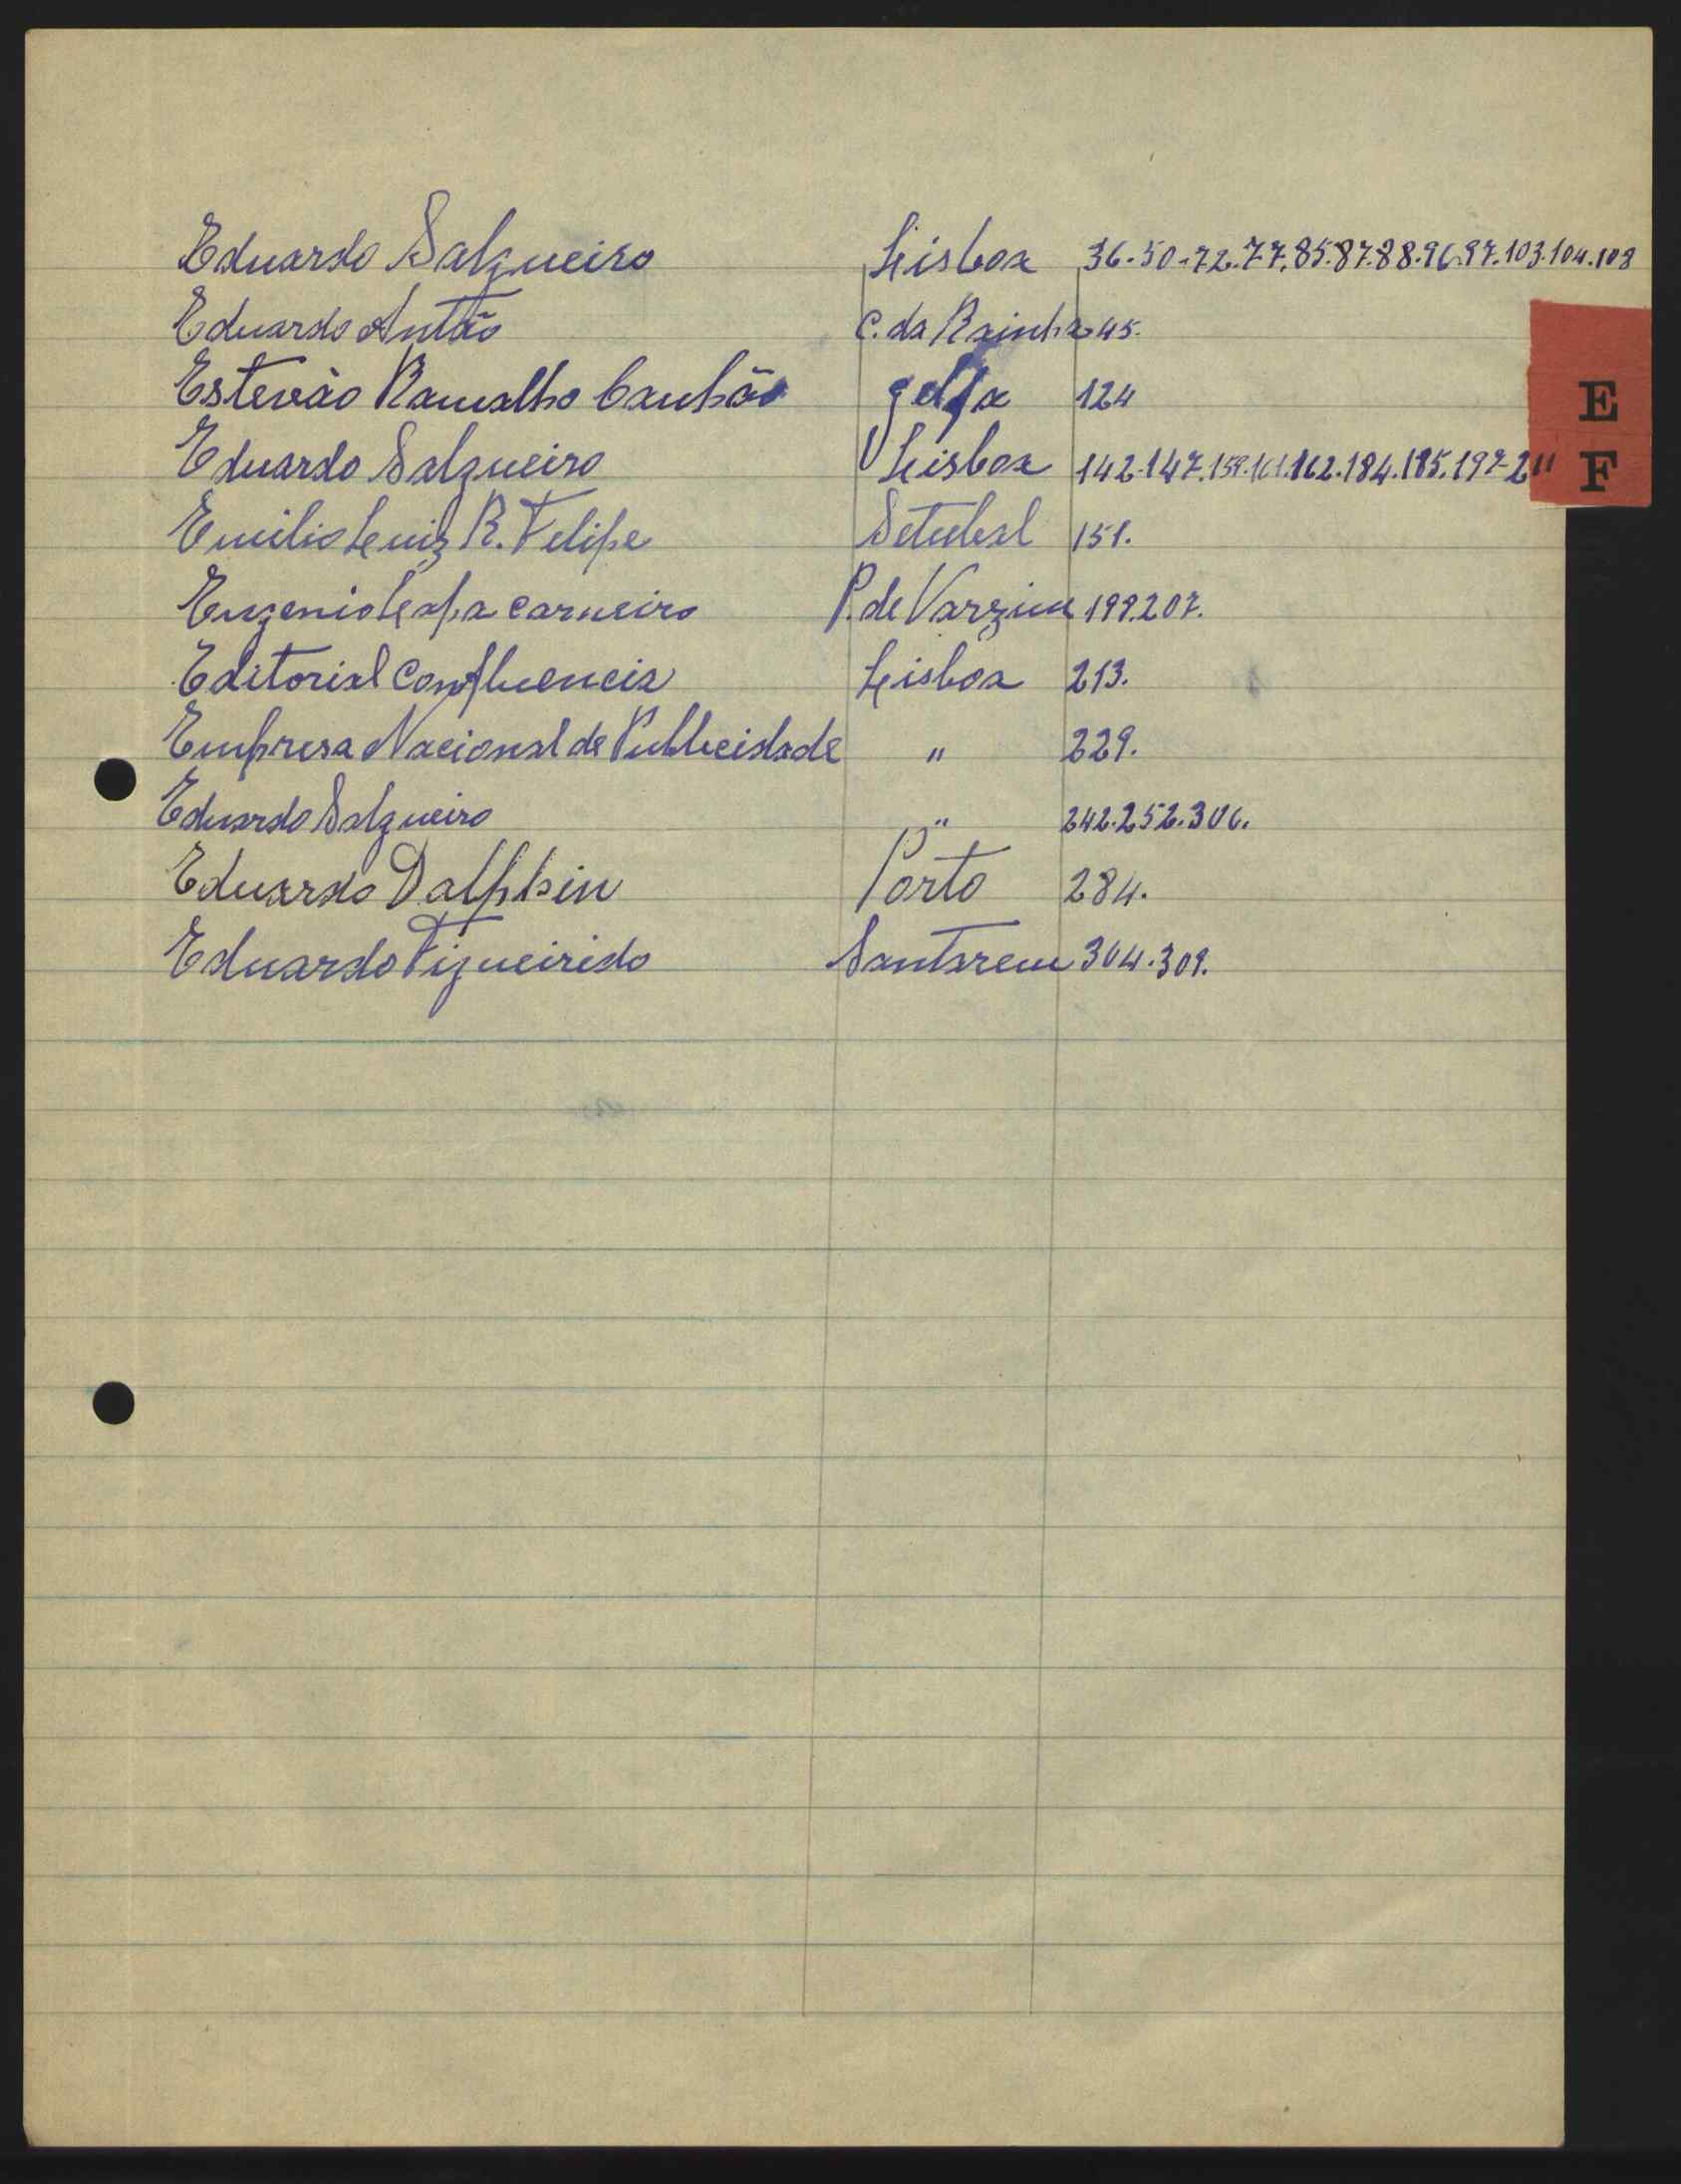 Eduardo Salgueiro Lisboa 36-50-72.77.85.87.88.96.97.103.104.108
Eduardo Antão C. da Rainha 45.
Estevão Ramalho Canhão 124
E
Eduardo Salgueiro Lisboa 142-147.159.161.162.184.185.197-211
F
Emilio Luiz R. Felipe Setubal 151.
Eugenio Lapa Carneiro P. de Varzim 199.207.
Editorial Confluencia Lisboa 213.
Empresa Nacional de Publicidade " 229.
Eduardo Salgueiro " 242.252.306.
Eduardo Dalphin Porto 284.
Eduardo Figueirido Santarem 304.309.